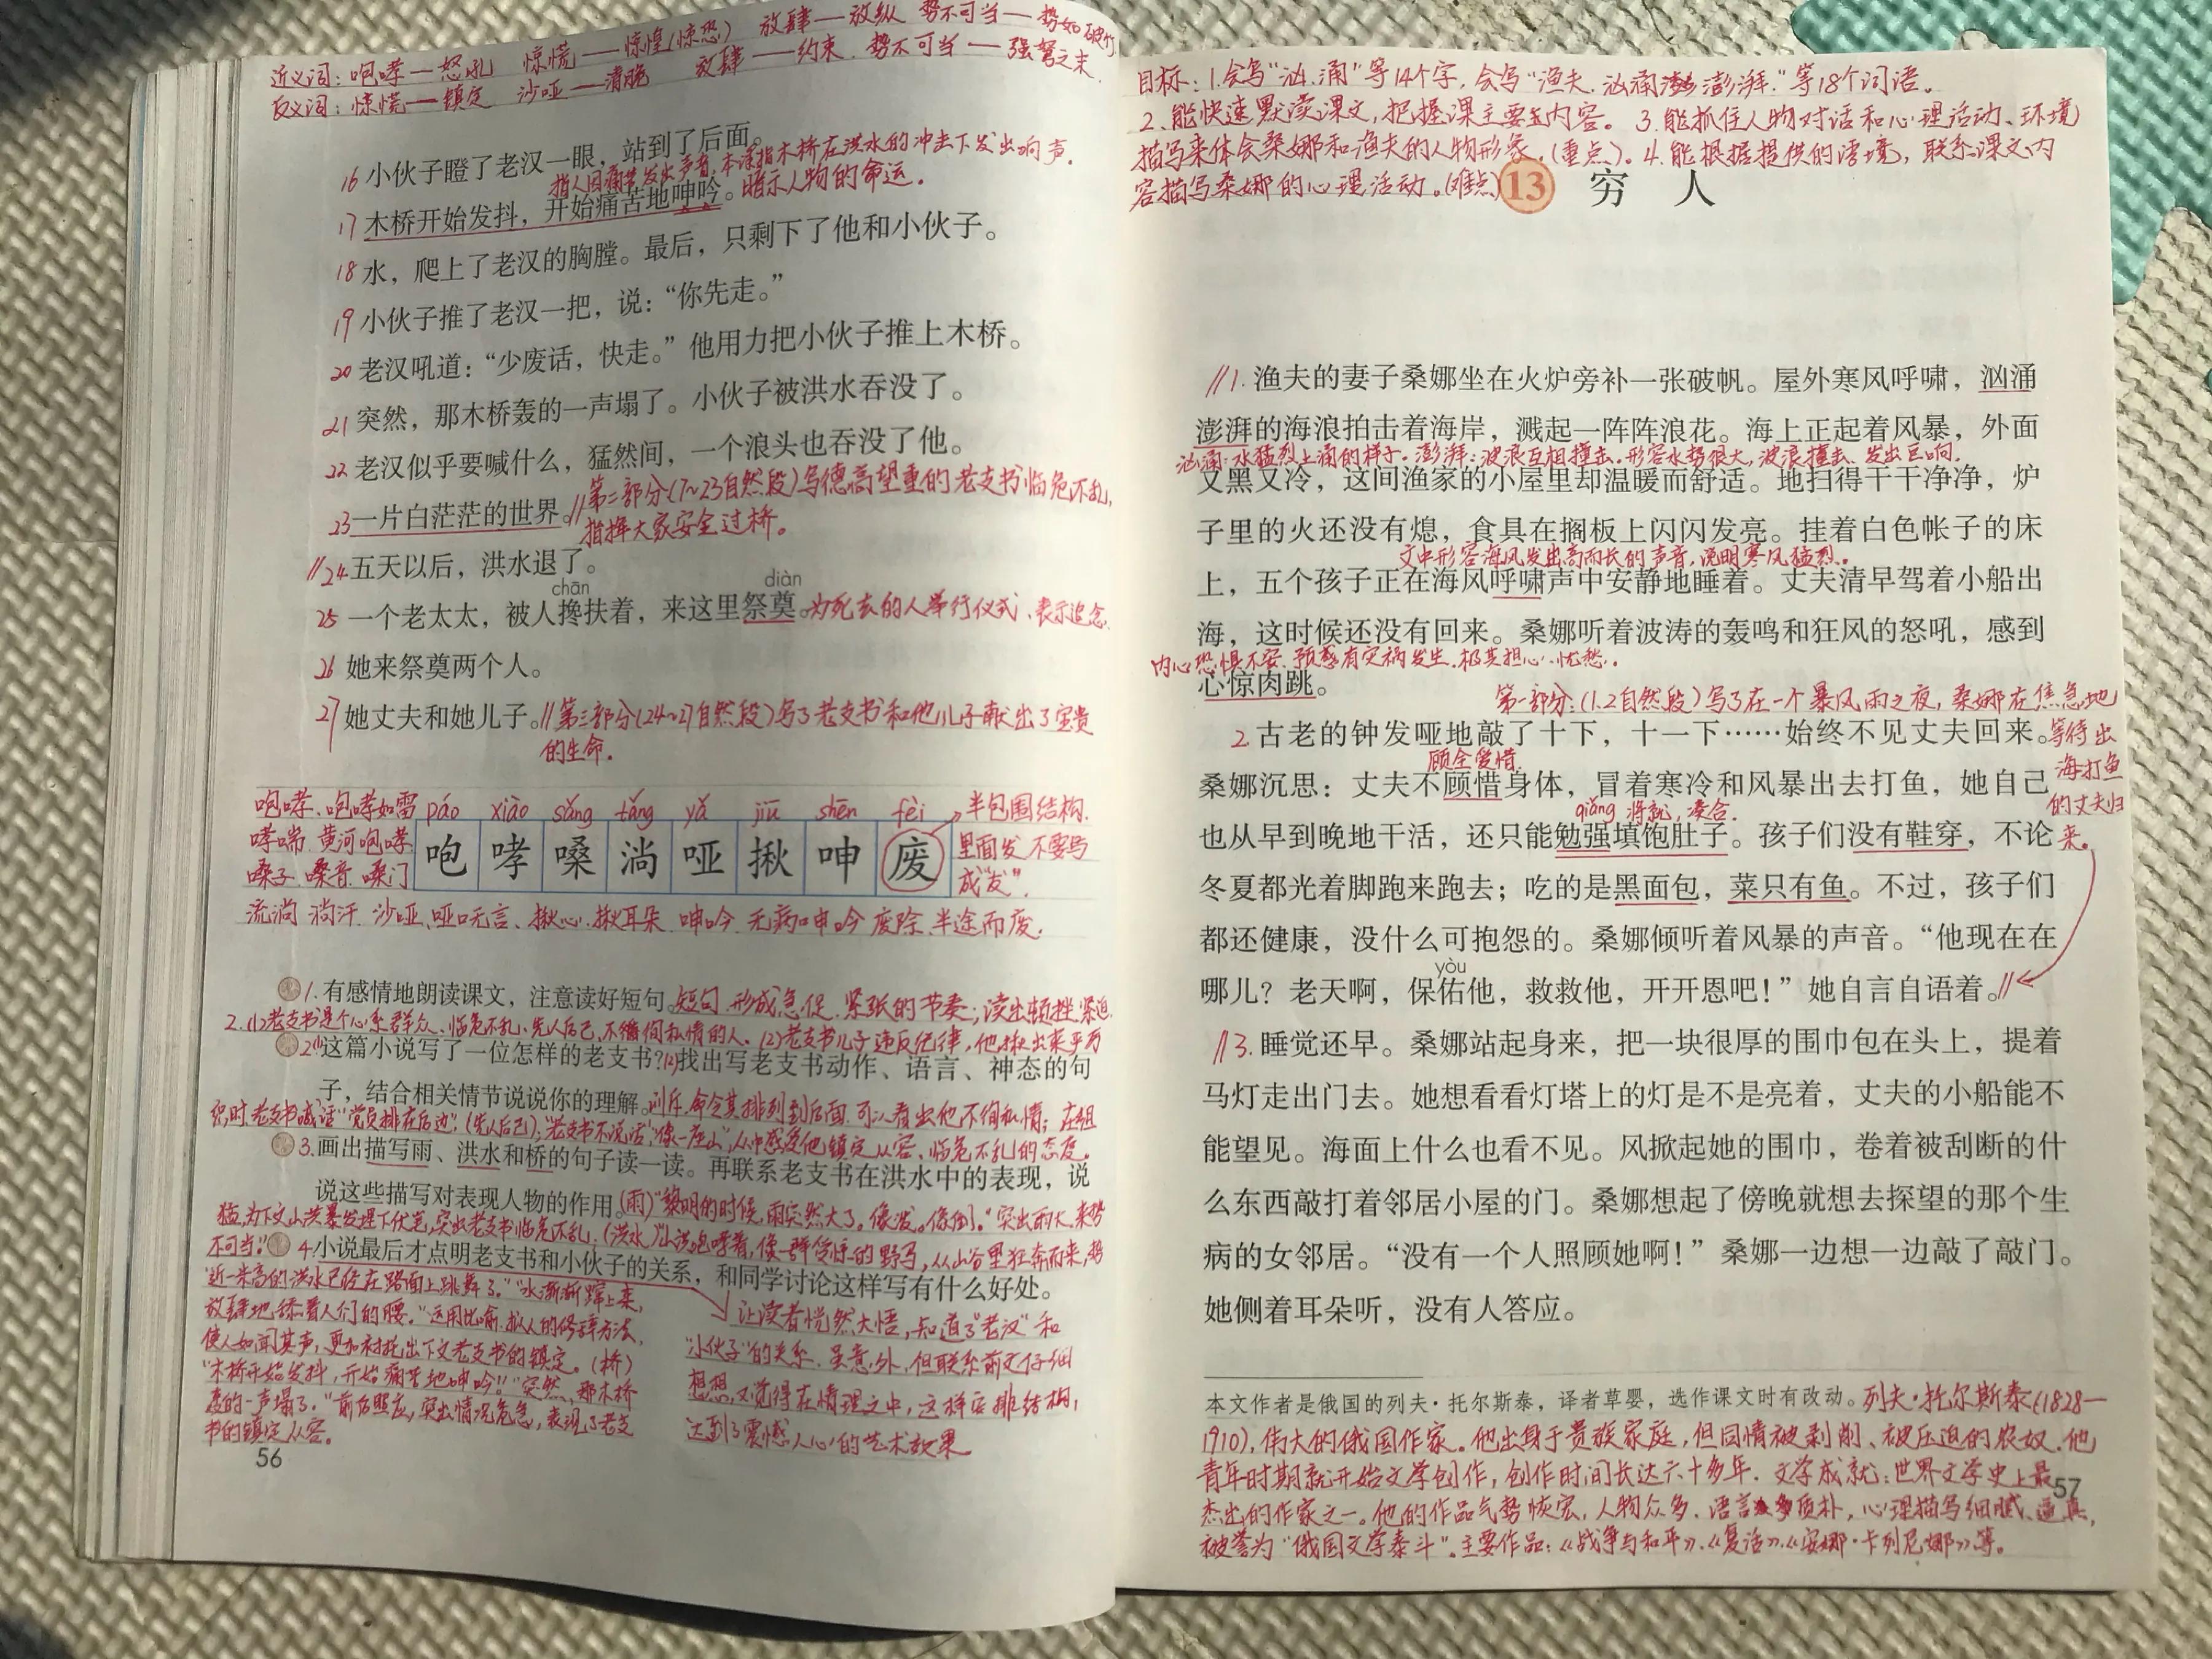 近义词：咆哮—怒吼 惊慌—惊惶(惊恐) 放肆—放纵 势不可当—势如破竹
反义词：惊慌—镇定 沙哑—清脆 放肆—约束. 势不可当—强弩之末.
16 小伙子瞪了老汉一眼，站到了后面。
指人因痛苦发出声音，本课指木桥在洪水的冲击下发出响声，
17 木桥开始发抖，开始痛苦地呻吟。暗示人物的命运.
18 水，爬上了老汉的胸膛。最后，只剩下了他和小伙子。
19 小伙子推了老汉一把，说：“你先走。”
20 老汉吼道：“少废话，快走。”他用力把小伙子推上木桥。
21 突然，那木桥轰的一声塌了。小伙子被洪水吞没了。
22 老汉似乎要喊什么，猛然间，一个浪头也吞没了他。
23 一片白茫茫的世界。//第二部分(7~23自然段)写德高望重的老支书临危不乱，
指挥大家安全过桥。
//24 五天以后，洪水退了。
chān diàn
25 一个老太太，被人搀扶着，来这里祭奠。为死去的人举行仪式、表示追念.
26 她来祭奠两个人。
27 她丈夫和她儿子。//第三部分(24~27自然段)写了老支书和他儿子献出了宝贵
的生命.
咆哮、咆哮如雷 páo xiào sǎng tǎng yǎ jiū shēn fèi 半包围结构.
哮喘 黄河咆哮 咆 哮 嗓 淌 哑 揪 呻 废 里面发 不要写
嗓子 嗓音 嗓门 成“发”.
流淌 淌汗 沙哑 哑口无言、揪心 揪耳朵 呻吟 无病呻吟 废除 半途而废.
1. 有感情地朗读课文，注意读好短句。短句 形成急促、紧张的节奏；读出顿挫 紧迫.
2.(1)老支书是个心系群众、临危不乱、先人后己、不徇私情的人.(2)老支书儿子违反纪律，他揪出来平方
2.(1)这篇小说写了一位怎样的老支书？(2)找出写老支书动作、语言、神态的句
子，结合相关情节说说你的理解。训斥、命令其排列到后面.可以看出他不徇私情；在组
织时，老支书喊话“党员排在后边”(先人后己)；老支书不说话，“像一座山”，从中感受他镇定从容、临危不乱的态度.
3. 画出描写雨、洪水和桥的句子读一读。再联系老支书在洪水中的表现，说
说这些描写对表现人物的作用。(雨)“黎明的时候，雨突然大了。像泼。像倒。”突出雨大、来势
猛，为下文山洪暴发埋下伏笔，突出老支书临危不乱；(洪水)“山洪咆哮着，像一群受惊的野马，从山谷里狂奔而来，势
不可当”
4 小说最后才点明老支书和小伙子的关系，和同学讨论这样写有什么好处。
“近一米高的洪水已经在路面上跳舞了。”“水渐渐蹿上来，
放肆地舔着人们的腰。”运用比喻、拟人的修辞方法，
使人如闻其声，更加衬托出下文老支书的镇定。(桥)
“木桥开始发抖，开始痛苦地呻吟”“突然，那木桥
轰的一声塌了.”前后照应，突出情况危急，表现了老支
书的镇定从容.
让读者恍然大悟，知道了“老汉”和
“小伙子”的关系.虽意外，但联系前文仔细
想想，又觉得在情理之中，这样安排结构，
达到了震撼人心的艺术效果
56
目标：1.会写“汹、涌”等14个字，会写“渔夫、汹涌澎湃”等18个词语。
2、能快速默读课文，把握课文主要内容。3.能抓住人物对话和心理活动、环境
描写来体会桑娜和渔夫的人物形象.(重点)。4.能根据提供的语境，联系课文内
容描写桑娜的心理活动。(难点)
13 穷 人
//1. 渔夫的妻子桑娜坐在火炉旁补一张破帆。屋外寒风呼啸，汹涌
澎湃的海浪拍击着海岸，溅起一阵阵浪花。海上正起着风暴，外面
汹涌：水猛烈上涌的样子.澎湃：波浪互相撞击.形容水势很大，波浪撞击、发出巨响.
又黑又冷，这间渔家的小屋里却温暖而舒适。地扫得干干净净，炉
子里的火还没有熄，食具在搁板上闪闪发亮。挂着白色帐子的床
文中形容海风发出高而长的声音，说明寒风猛烈。
上，五个孩子正在海风呼啸声中安静地睡着。丈夫清早驾着小船出
海，这时候还没有回来。桑娜听着波涛的轰鸣和狂风的怒吼，感到
内心恐惧不安、预感有灾祸发生.极其担心、忧愁.
心惊肉跳。
第一部分：(1.2自然段)写了在一个暴风雨之夜，桑娜在焦急地
2 古老的钟发哑地敲了十下，十一下……始终不见丈夫回来。等待出
顾全爱惜.
桑娜沉思：丈夫不顾惜身体，冒着寒冷和风暴出去打鱼，她自己海打鱼
qiǎng 将就，凑合. 的丈夫归
也从早到晚地干活，还只能勉强填饱肚子。孩子们没有鞋穿，不论来。
冬夏都光着脚跑来跑去；吃的是黑面包，菜只有鱼。不过，孩子们
都还健康，没什么可抱怨的。桑娜倾听着风暴的声音。“他现在在
yòu
哪儿？老天啊，保佑他，救救他，开开恩吧！”她自言自语着。//
//3. 睡觉还早。桑娜站起身来，把一块很厚的围巾包在头上，提着
马灯走出门去。她想看看灯塔上的灯是不是亮着，丈夫的小船能不
能望见。海面上什么也看不见。风掀起她的围巾，卷着被刮断的什
么东西敲打着邻居小屋的门。桑娜想起了傍晚就想去探望的那个生
病的女邻居。“没有一个人照顾她啊！”桑娜一边想一边敲了敲门。
她侧着耳朵听，没有人答应。
本文作者是俄国的列夫·托尔斯泰，译者草婴，选作课文时有改动。列夫·托尔斯泰(1828—
1910)，伟大的俄国作家。他出身于贵族家庭，但同情被剥削、被压迫的农奴.他
青年时期就开始文学创作，创作时间长达六十多年.文学成就：世界文学史上最
57
杰出的作家之一。他的作品气势恢宏，人物众多、语言质朴，心理描写细腻、逼真，
被誉为“俄国文学泰斗”.主要作品：《战争与和平》、《复活》、《安娜·卡列尼娜》等。